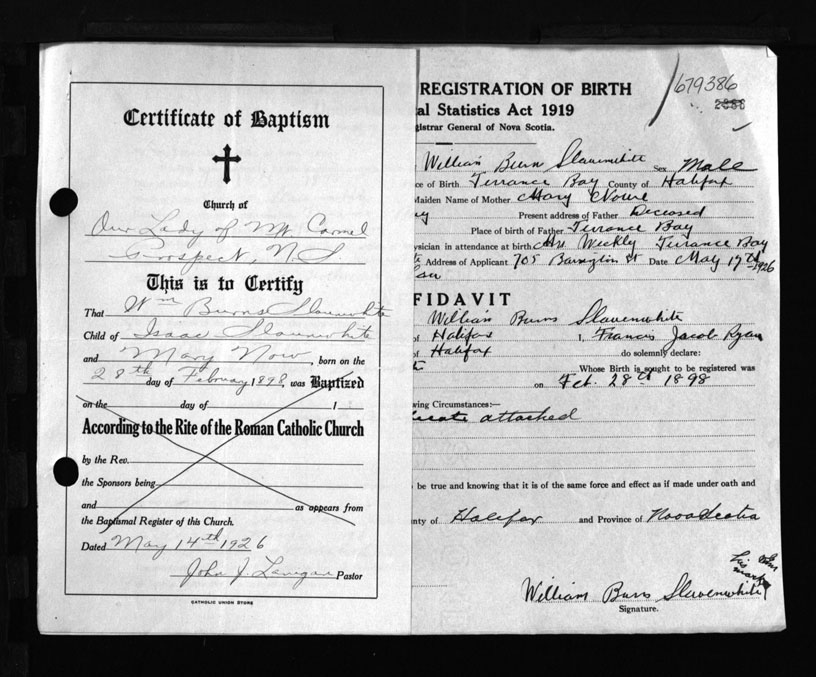 Certificate of Baptism
Church of
Our Lady of Mt Carmel
Prospect, N.S.
This is to Certify
That Wm Burns Slaunwhite
Child of Isaac Slaunwhite
and Mary Now, born on the
28th day of February 1898, was Baptized
on the day of 1
According to the Rite of the Roman Catholic Church
by the Rev.
the Sponsors being
and as appears from
the Baptismal Register of this Church.
Dated May 14th 1926
John J. Lanigan Pastor
CATHOLIC UNION STORE
REGISTRATION OF BIRTH
al Statistics Act 1919
gistrar General of Nova Scotia.
679386
William Burn Slauenwhite Sex Male
ce of Birth Terrance Bay County of Halifax
Maiden Name of Mother Mary Nowe
Present address of Father Deceased
Place of birth of Father Terrance Bay
ysician in attendance at birth Mrs Weekly Terrance Bay
Address of Applicant 705 Barington St Date May 17th 1926
FIDAVIT
William Burns Slauenwhite
of Halifax I, Francis Jacob Ryan
of Halifax do solemnly declare:
Whose Birth is sought to be registered was
on Feb. 28th 1898
wing Circumstances:—
icate attached
be true and knowing that it is of the same force and effect as if made under oath and
nty of Halifax and Province of Nova Scotia
his
mark
William Burns Slauenwhite
Signature.